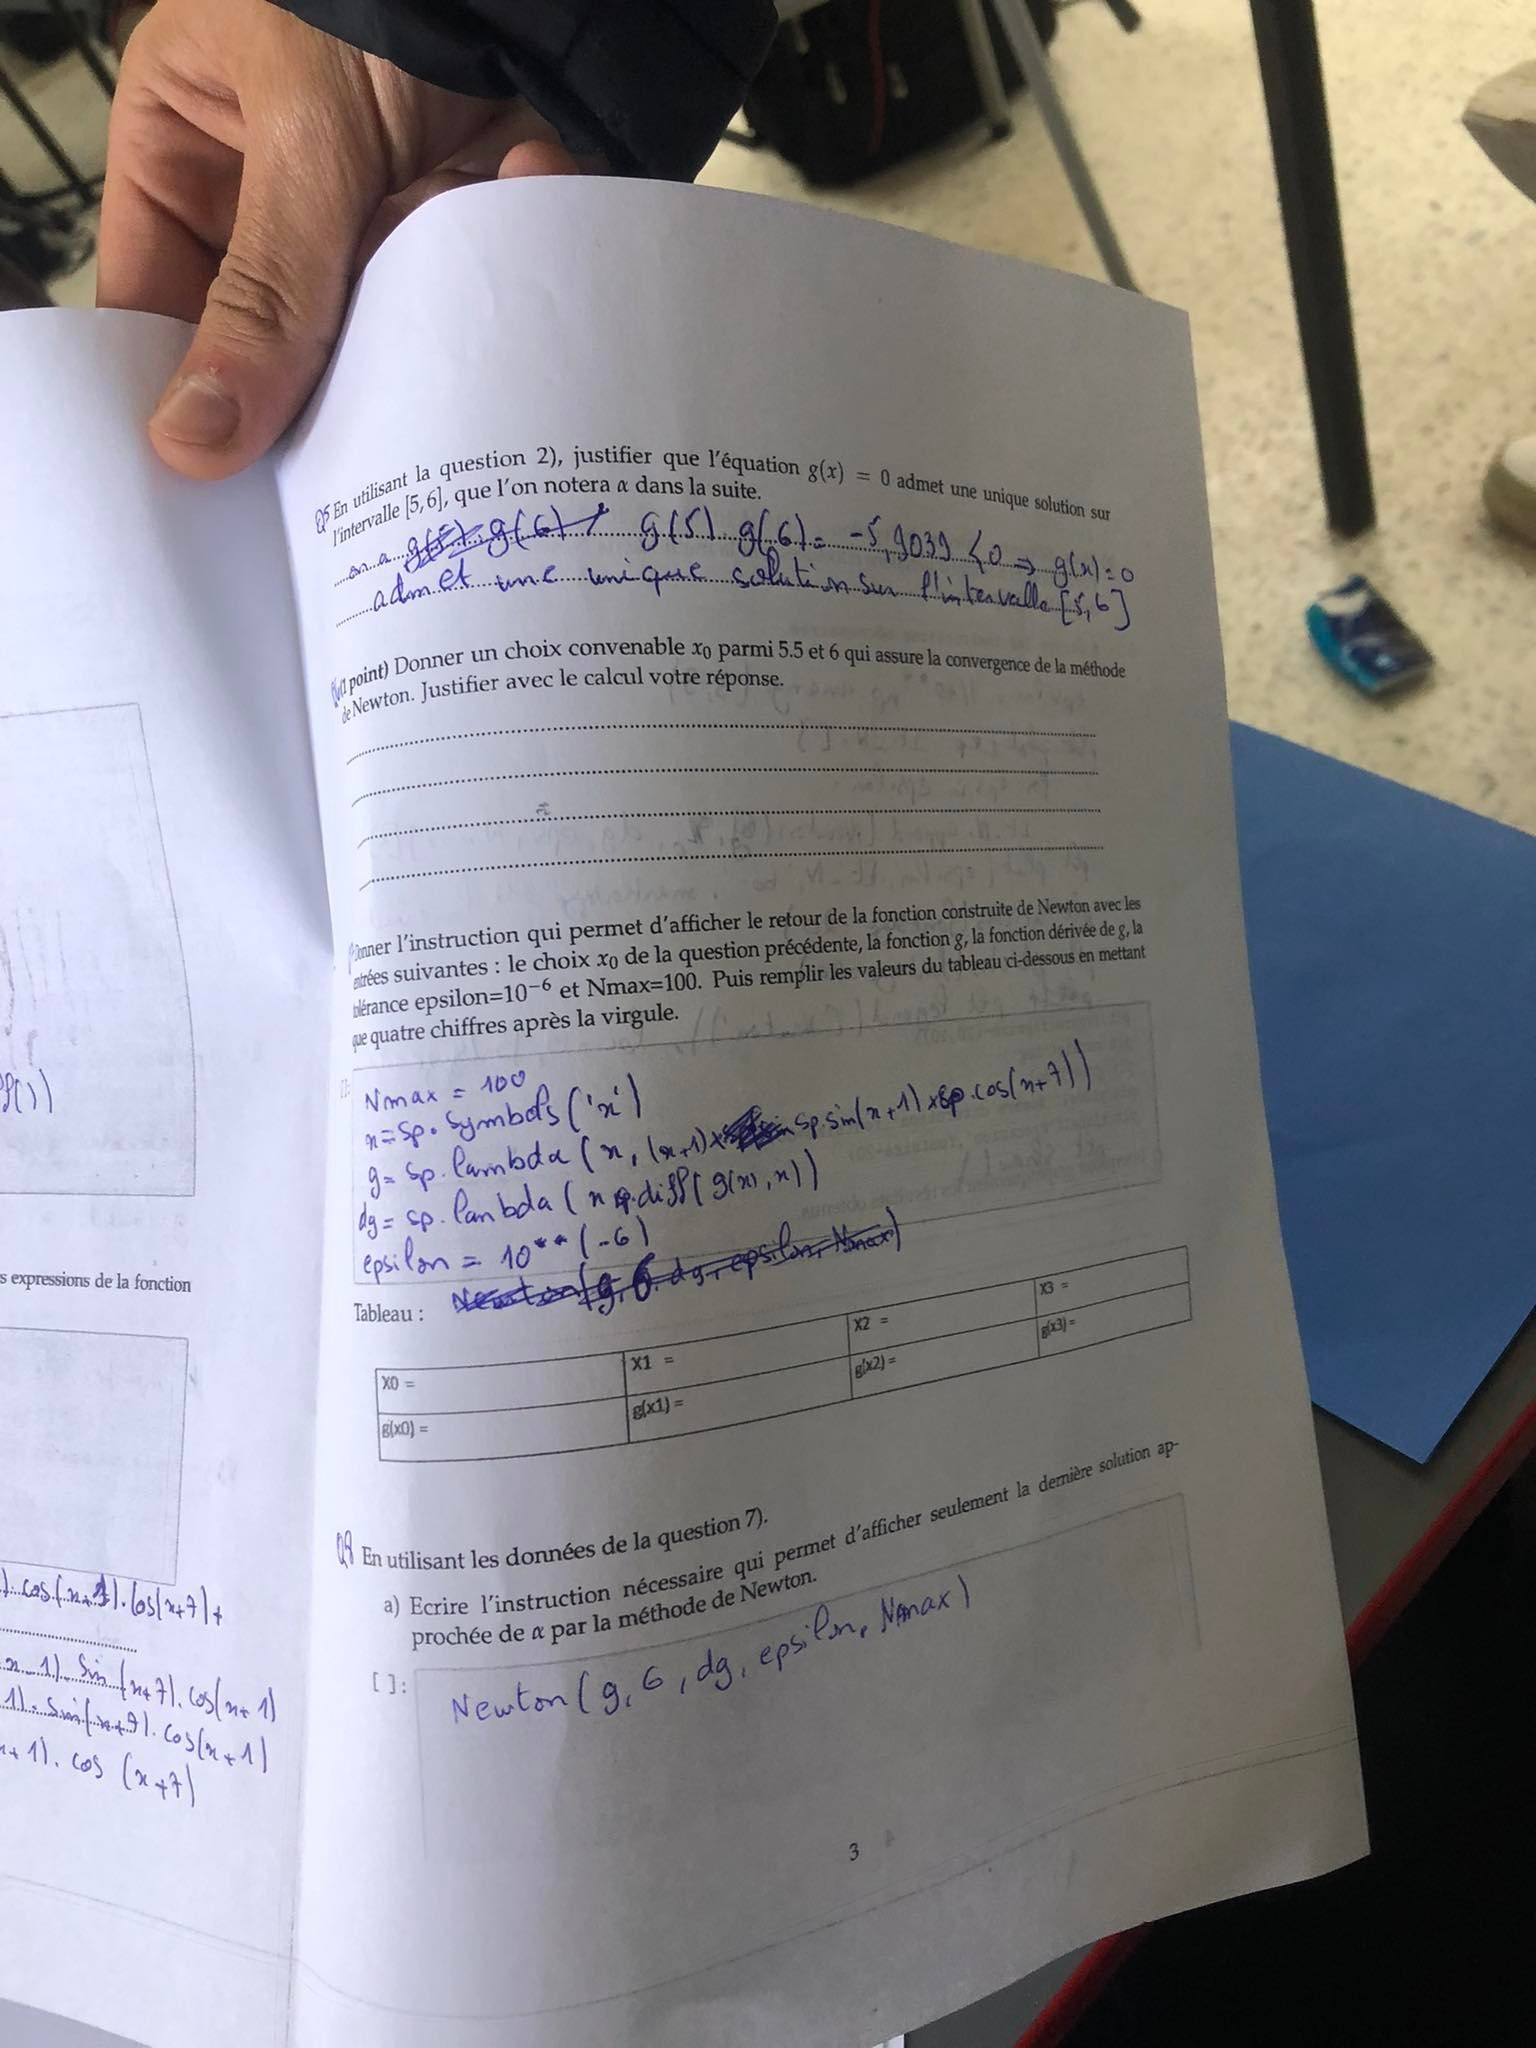 s expressions de la fonction
cos(x+1).cos(x+7)+
x 1) sin(x+7).cos(x+1)
1). sin(x+7). cos(x+1)
x+1). cos (x+7)
Q5 En utilisant la question 2), justifier que l'équation g(x) = 0 admet une unique solution sur
l'intervalle [5,6], que l'on notera α dans la suite.
on a g(5) g(6) g(5) g(6) = -5,9039 < 0 ⇒ g(x)=0
admet une unique solution sur l'intervalle [5,6]
(1 point) Donner un choix convenable x0 parmi 5.5 et 6 qui assure la convergence de la méthode
de Newton. Justifier avec le calcul votre réponse.
Donner l'instruction qui permet d'afficher le retour de la fonction construite de Newton avec les
entrées suivantes : le choix x0 de la question précédente, la fonction g, la fonction dérivée de g, la
tolérance epsilon=10−6 et Nmax=100. Puis remplir les valeurs du tableau ci-dessous en mettant
que quatre chiffres après la virgule.
Nmax = 100
x = sp. symbols ('x')
g = sp. lambda (x, (x+1)x sp.sin(x+1)xsp.cos(x+7))
dg = sp. lambda (x sp.diff(g(x), x))
epsilon = 10**(-6)
Newton(g, 6, dg, epsilon, Nmax)
Tableau :
X0 = X1 = X2 = X3 =
g(x0) = g(x1) = g(x2) = g(x3) =
Q8 En utilisant les données de la question 7).
a) Ecrire l'instruction nécessaire qui permet d'afficher seulement la dernière solution ap-
prochée de α par la méthode de Newton.
[ ]:
Newton(g, 6, dg, epsilon, Nmax)
3